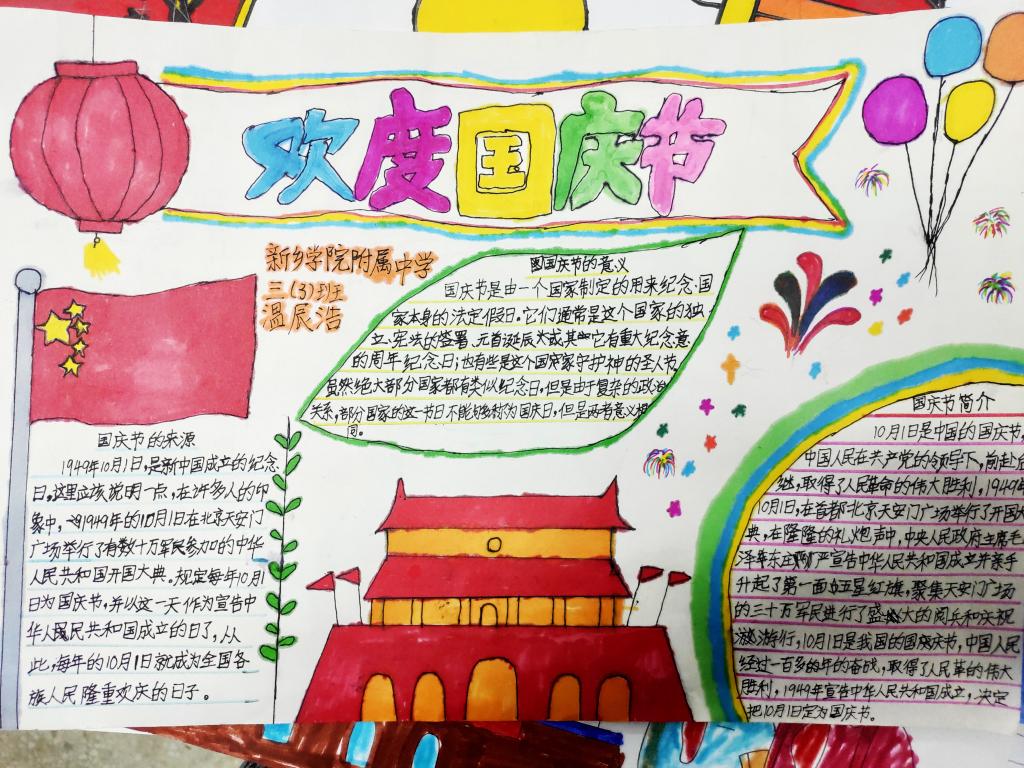 欢度国庆节
新乡学院附属中学
三(3)班
温辰浩
国庆节的意义
国庆节是由一个国家制定的用来纪念国
家本身的法定假日。它们通常是这个国家的独
立、宪法的签署、元首诞辰或其它有重大纪念意
的周年纪念日;也有些是这个国家守护神的圣人节。
虽然绝大部分国家都有类似纪念日,但是由于复杂的政治
关系,部分国家的这一节日不能够称为国庆日,但是两者意义相
同。
国庆节的来源
1949年10月1日,是新中国成立的纪念
日。这里应该说明一点,在许多人的印
象中,1949年的10月1日在北京天安门
广场举行了有数十万军民参加的中华
人民共和国开国大典。规定每年10月1
日为国庆节,并以这一天作为宣告中
华人民共和国成立的日了,从
此,每年的10月1日就成为全国各
族人民隆重欢庆的日子。
国庆节简介
10月1日是中国的国庆节,
中国人民在共产党的领导下,前赴后
继,取得了人民革命的伟大胜利,1949年
10月1日,在首都北京天安门广场举行了开国大
典,在隆隆的礼炮声中,中央人民政府主席毛
泽东庄严宣告中华人民共和国成立并亲手
升起了第一面五星红旗,聚集天安门广场
的三十万军民进行了盛大的阅兵和庆祝
游行,10月1日是我国的国庆节,中国人民
经过一百多年的奋战,取得了人民革的伟大
胜利,1949年宣告中华人民共和国成立,决定
把10月1日定为国庆节。